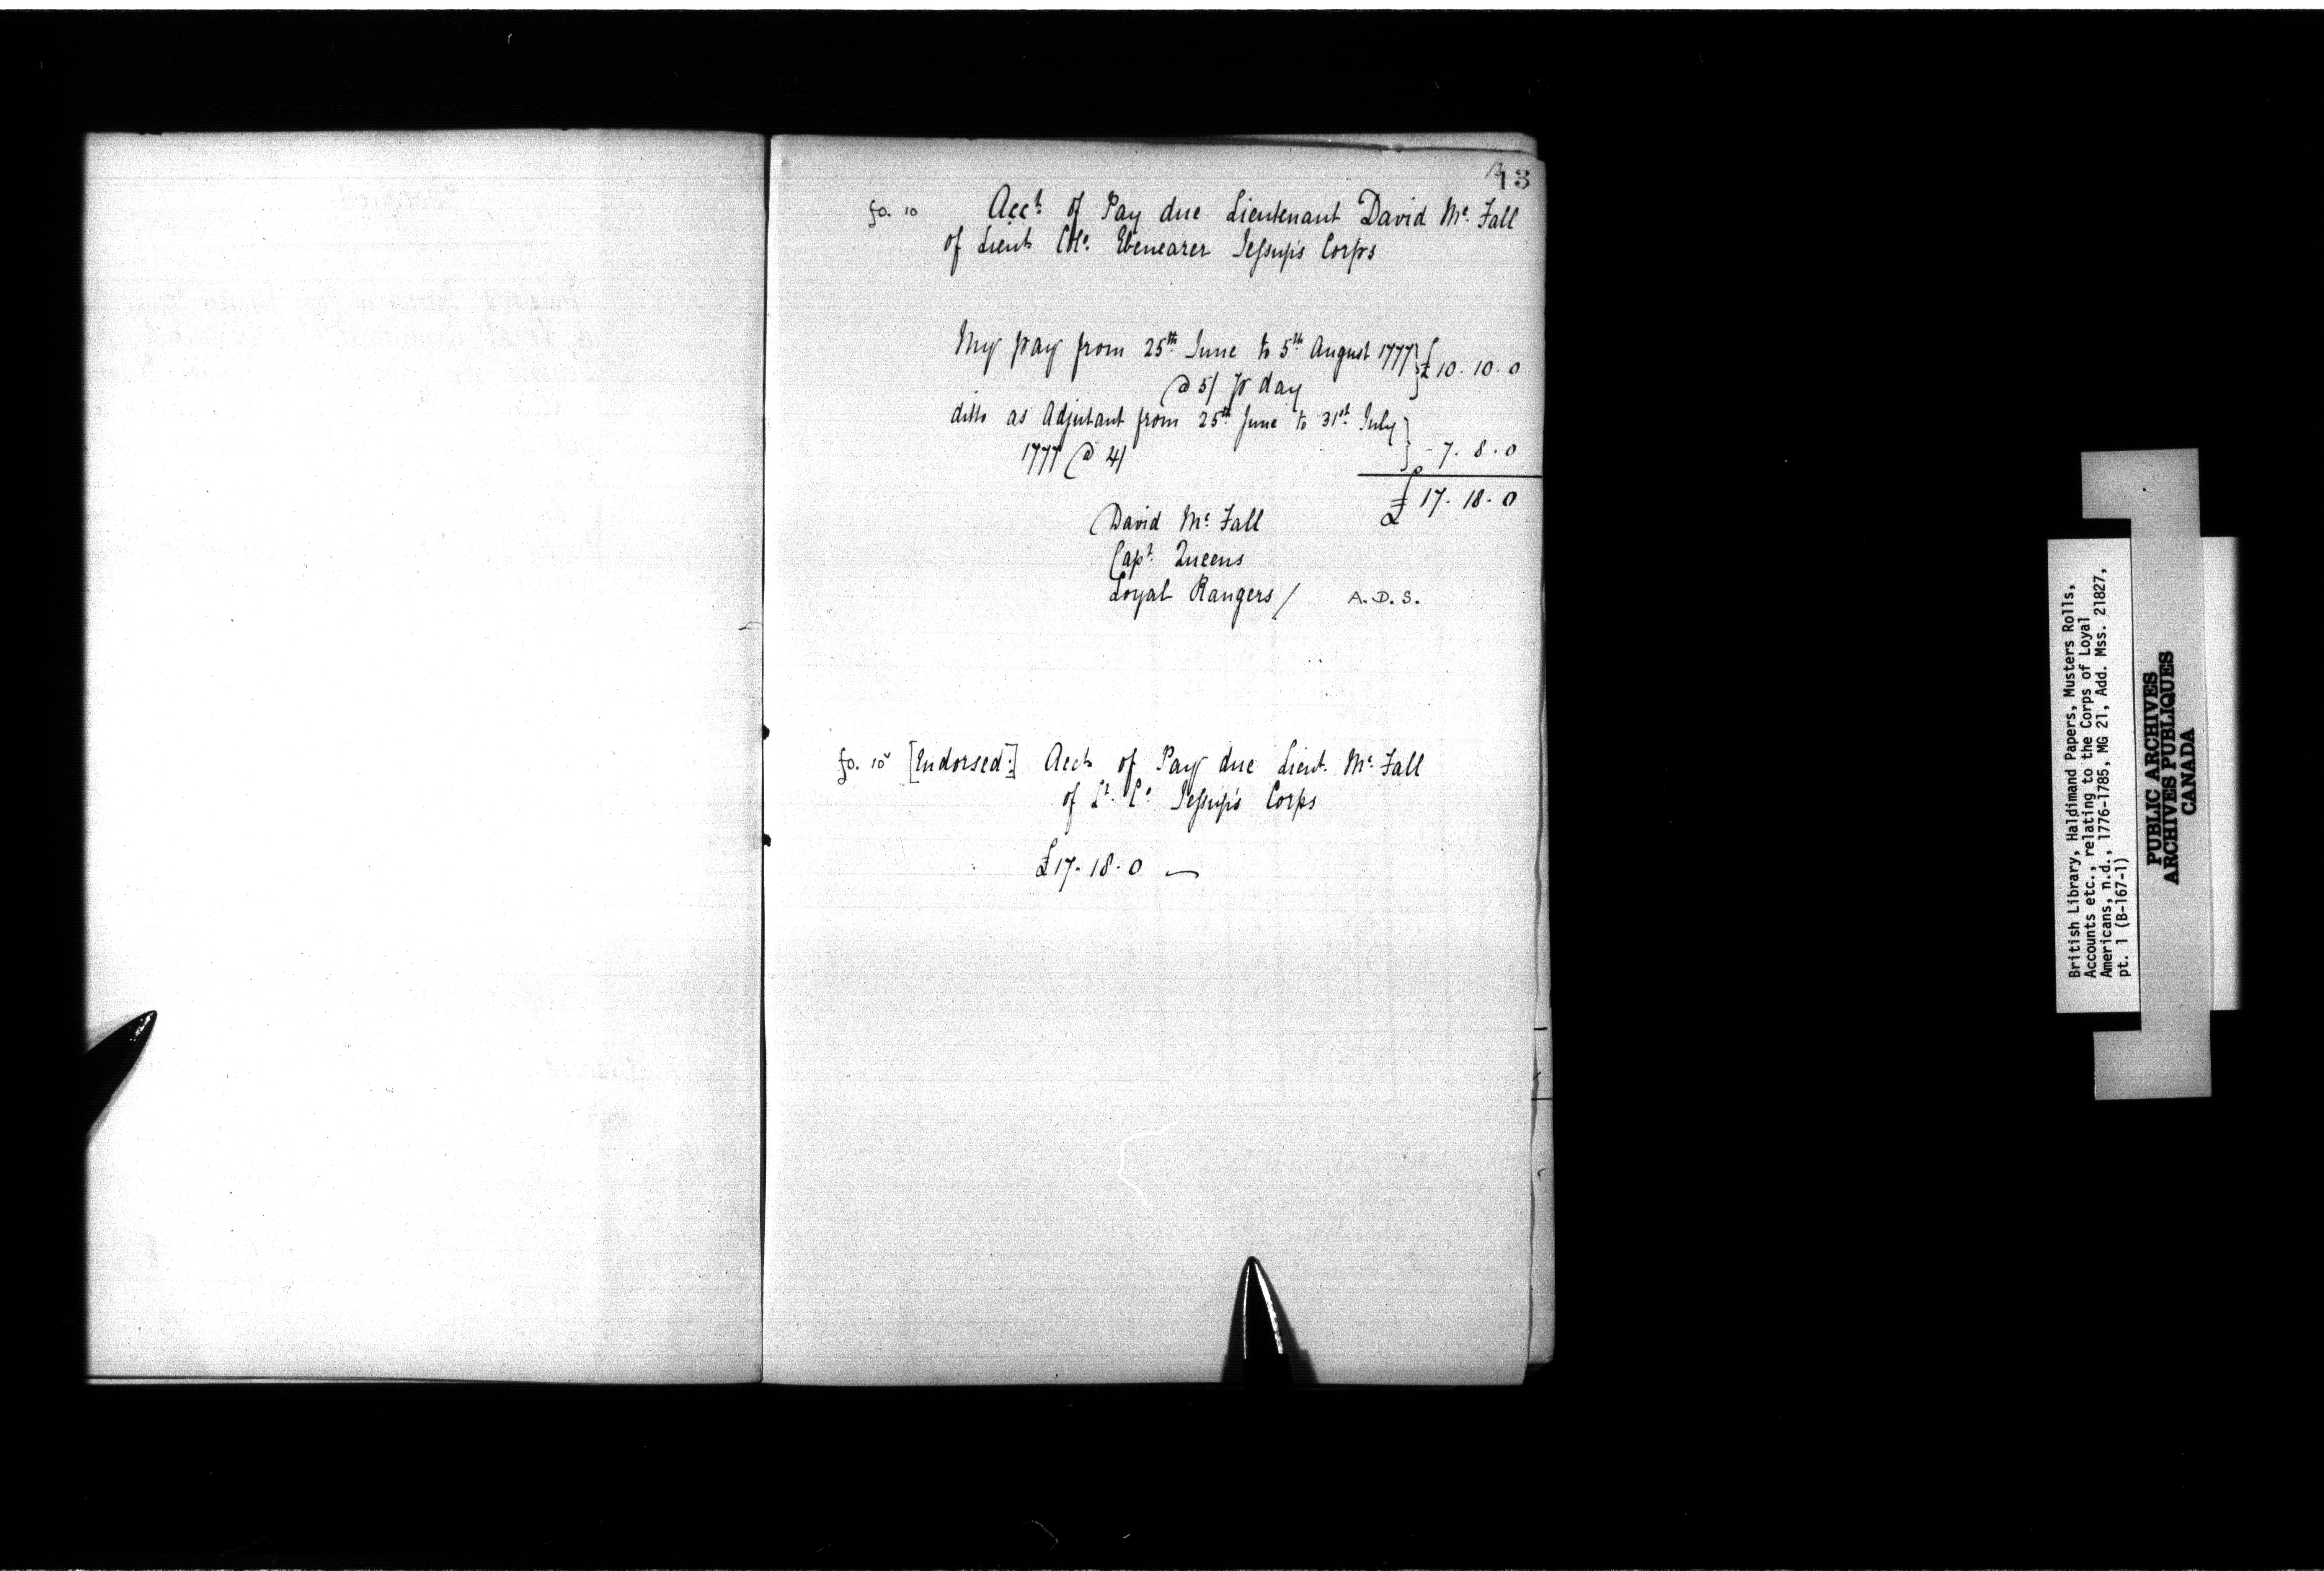 13
fo. 10 Acct. of Pay due Lieutenant David Mc. Fall
of Lieut Coll. Ebenearer Jessup's Corps
My pay from 25th June to 5th August 1777 } £10. 10. 0
@ 5/ pr day
ditto as Adjutant from 25th June to 31st July
1777 @ 4/ } - 7. 8. 0
£ 17. 18. 0
David Mc. Fall
Capt. Queens
Loyal Rangers / A.D.S.
fo. 10v [Endorsed:] Acct of Pay due Lieut. Mc. Fall
of Lt. Cl. Jessup's Corps
£17. 18. 0 —
British Library, Haldimand Papers, Musters Rolls,
Accounts etc., relating to the Corps of Loyal
Americans, n.d., 1776-1785, MG 21, Add. Mss. 21827,
pt. 1 (B-167-1)
PUBLIC ARCHIVES
ARCHIVES PUBLIQUES
CANADA